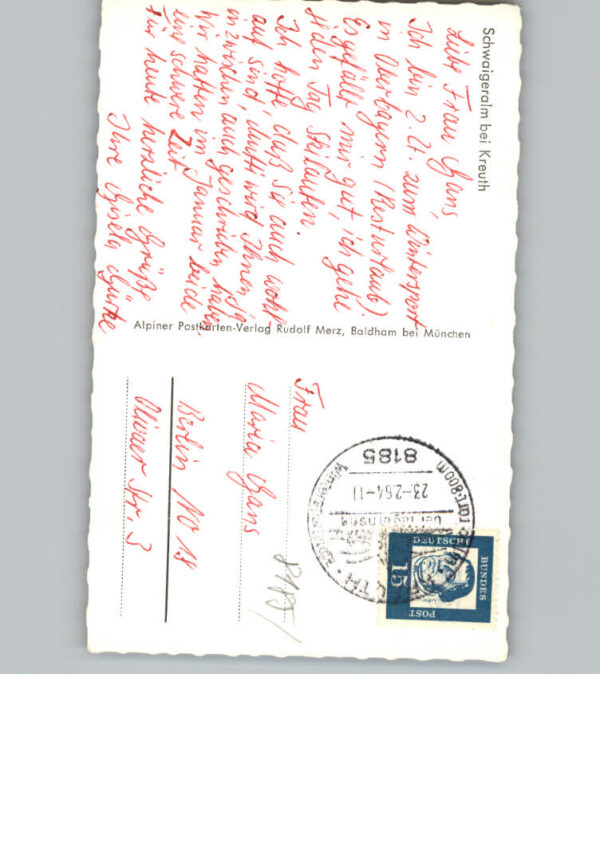 Schwaigeralm bei Kreuth
Liebe Frau Gans,
Ich bin z. Zt. zum Wintersport
in Oberbayern (Resturlaub)
Es gefällt mir gut, ich gehe
jeden Tag Skilaufen.
Ich hoffe, daß Sie auch wohl
auf sind, Mutti wird Ihnen ja
inzwischen auch geschrieben haben.
Wir hatten im Januar beide
eine schwere Zeit.
Für heute herzliche Grüße
Ihre Gisela
Alpiner Postkarten-Verlag Rudolf Merz, Baldham bei München
Frau
Maria Gans
Berlin NO 18
Olivaer Str. 3
8185
23.-2.64-11
8185
DEUTSCHE
BUNDES
POST
15